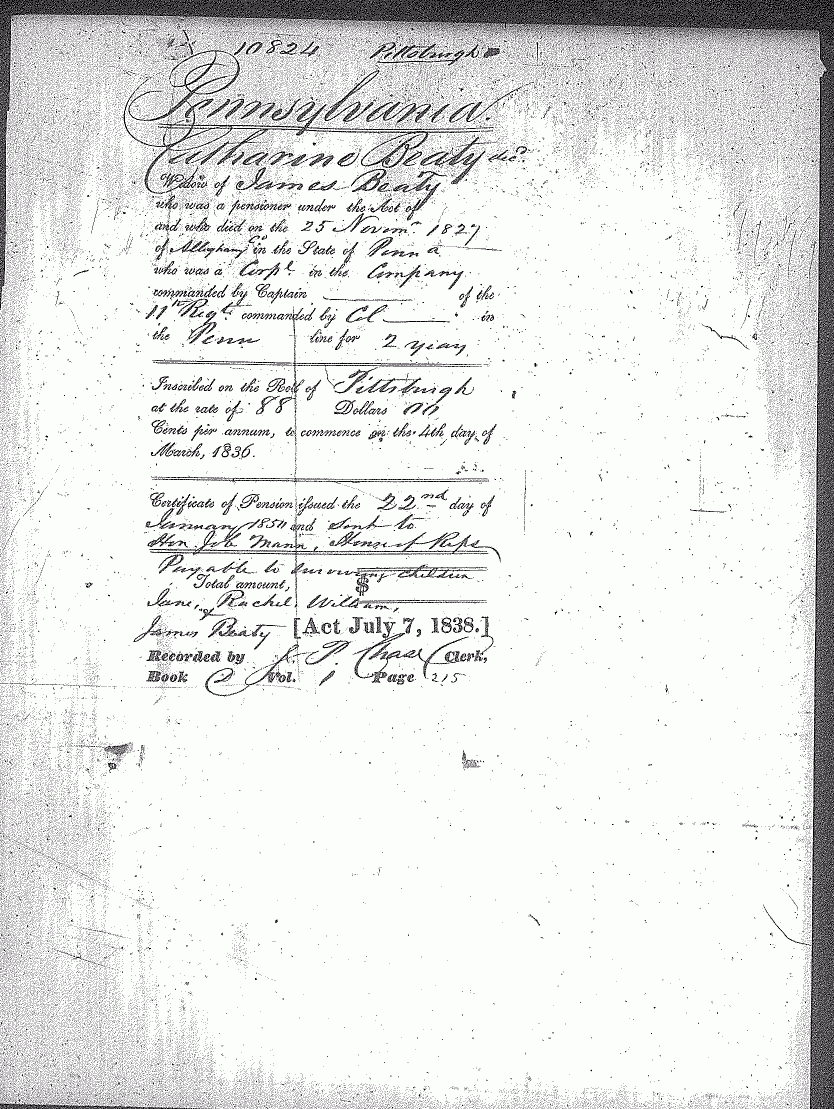 10824 Pittsburgh
Pennsylvania.
Catharine Beaty decd.
Widow of James Beaty
who was a pensioner under the Act of
and who died on the 25 Novemr. 1827
of Alleghany Co in the State of Penna
who was a Corpl. in the Company
commanded by Captain ______ of the
11th Regt. commanded by Col ______ in
the Penn line for 2 years
Inscribed on the Roll of Pittsburgh
at the rate of 88 Dollars 00
Cents per annum, to commence on the 4th day of
March, 1836.
Certificate of Pension issued the 22nd day of
January 1850 and sent to
Hon Job Mann, House of Reps
Payable to surviving children
Total amount, $
Jane, Rachel, William,
James Beaty [Act July 7, 1838.]
Recorded by Chase Clerk,
Book D Vol. 1 Page 215